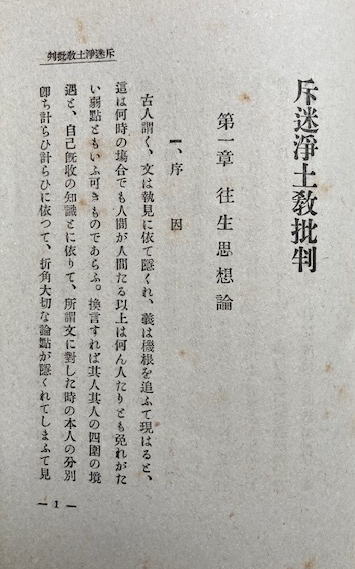 斥迷淨土教批判
第一章　往生思想論
一、序　因
古人謂く、文は執見に依て隱くれ、義は機根を追ふて現はると、
這は何時の場合でも人間が人間たる以上は何ん人たりとも免れがた
い弱點ともいふ可きものであらふ。換言すれば其人其人の四圍の境
遇と、自己既收の知識とに依りて、所謂文に對した時の本人の分別
卽ち計らひ計らひに依つて、折角大切な論點が隱くれてしまふて見
斥迷淨土教批判
— 1 —